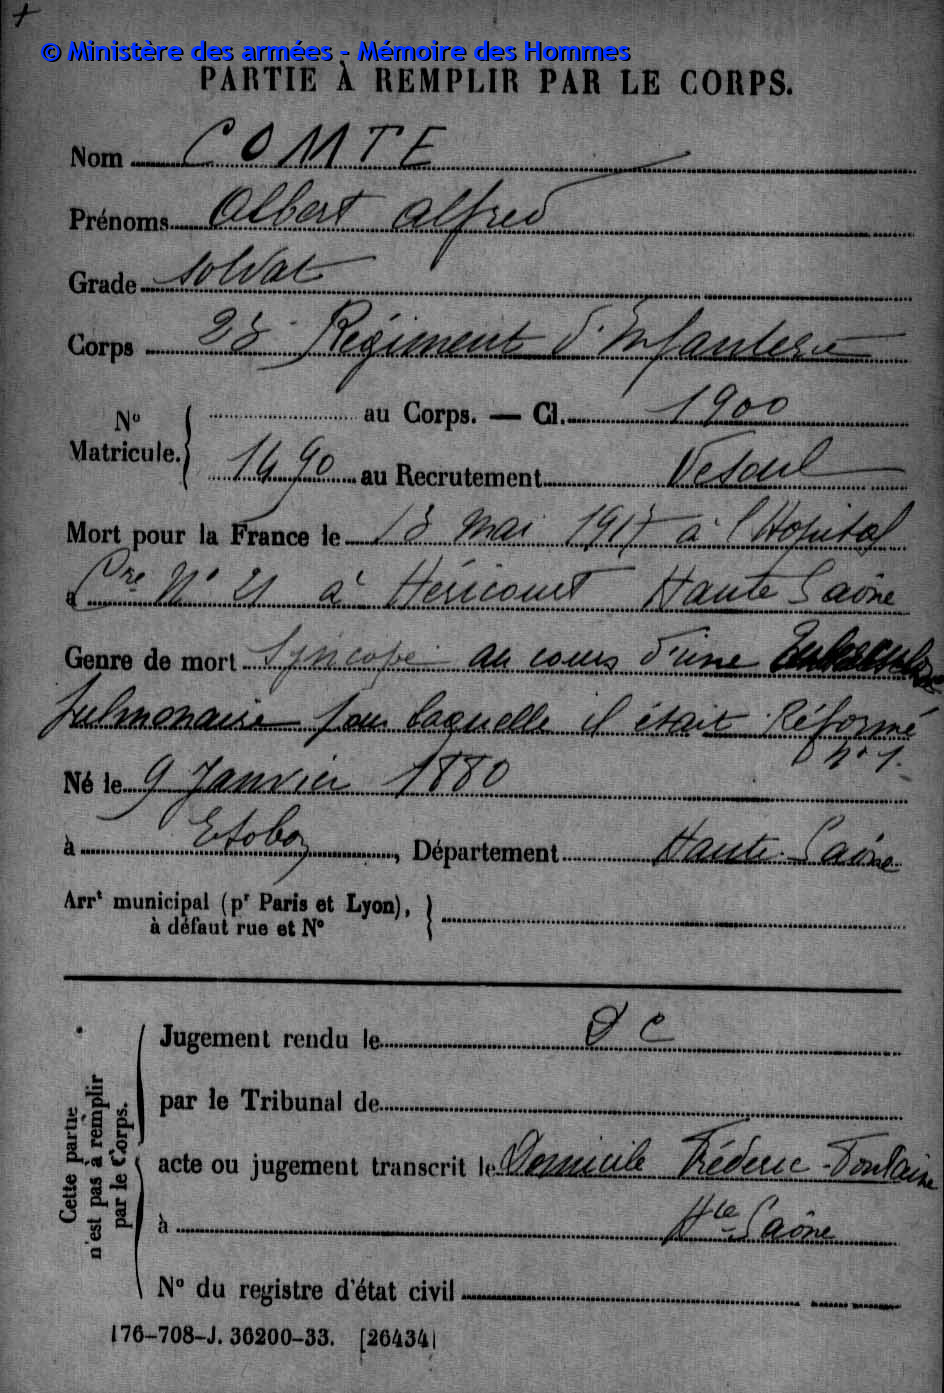 © Ministère des armées - Mémoire des Hommes
PARTIE À REMPLIR PAR LE CORPS.
Nom COMTE
Prénoms Albert Alfred
Grade soldat
Corps 23e Régiment d'Infanterie
No Matricule. { au Corps. — Cl. 1900
1490 au Recrutement Vesoul
Mort pour la France le 13 mai 1917 à l'Hopital
à Cre No 21 à Héricourt Haute Saône
Genre de mort Syncope au cours d'une Tuberculose
pulmonaire pour laquelle il était Réformé
no 1.
Né le 9 Janvier 1880
à Etobon, Département Haute-Saône
Arrt municipal (pr Paris et Lyon), }
à défaut rue et No
Cette partie n'est pas à remplir par le Corps.
Jugement rendu le DC
par le Tribunal de
acte ou jugement transcrit le Domicile Fréderic-Fontaine
à Hte Saône
No du registre d'état civil
176-708-J. 36200-33. [26434]